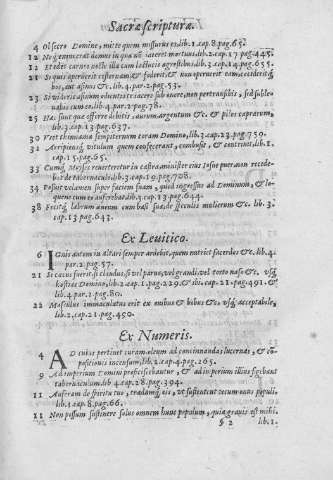 Sacræ scripturæ.
4 Obsecro Domine, mitte quem missurus es.lib.1.cap.8.pag.65.
12 Neq; enim erat domus in qua non iaceret mortuus.lib.2.cap.17.pag.445.
11 Et edet carnes nocte illa cum lactucis agrestibus.lib.3.cap.14.pag.655.
21 Si quis aperuerit cisternam, & foderit, & non operuerit eam, cecideritq;
bos, aut asinus &c.lib.4.par.2.pag.53.
23 Si videris asinum odientis te iacere sub onere, non pertransibis, sed suble-
uabis cum eo.lib.4.par.2.pag.78.
25 Hæc sunt quæ offerre debetis, aurum, argentum &c. & pilos caprarum,
lib.3.cap.13.pag.637.
30 Erit thymiama sempiternum coram Domino, lib.2.cap.23.pag.759.
32 Arripiensq; vitulum quem confecerant, combussit, & contriuit, lib.1.
cap.15.pag.65.
33 Cumq; Moyses reuerteretur in castra, minister eius Iosue puer, non recede-
bat de tabernaculo.lib.3.cap.19.pag.708.
34 Posuit velamen super faciem suam, quod ingressus ad Dominum, & lo-
quens cum eo auferebat.lib.4.cap.13.pag.643.
38 Fecitq; labrum æneum cum basi sua, de speculis mulierum &c.lib.3.
cap.13.pag.643.
Ex Leuitico.
6 Ignis autem in altari semper ardebit, quem nutriet sacerdos &c.lib.4.
par.2.pag.57.
21 Si cæcus fuerit, si claudus, si vel paruo, vel grandi, vel torto naso &c.
hostias Domino, lib.2.cap.1.pag.229.& lib.cap.21.pag.491.&
lib.4.par.2.pag.80.
22 Masculus immaculatus erit ex ouibus & bobus &c. vt sit acceptabile,
lib.2.cap.21.pag.450.
Ex Numeris.
4 Ad cuius pertinet curam oleum ad concinnandas lucernas, & com-
positionis incensum, lib.2.cap.4.pag.265.
9 Ad imperium Domini proficiscebantur, & ad imperium illius figebant
tabernaculum.lib.4.cap.28.pag.394.
11 Auferam de spiritu tuo, tradamq; eis, vt sustentent tecum onus populi,
lib.1.cap.8.pag.66.
11 Non possum sustinere solus omnem hunc populum, quia grauis est mihi.
§ 2 lib.1.